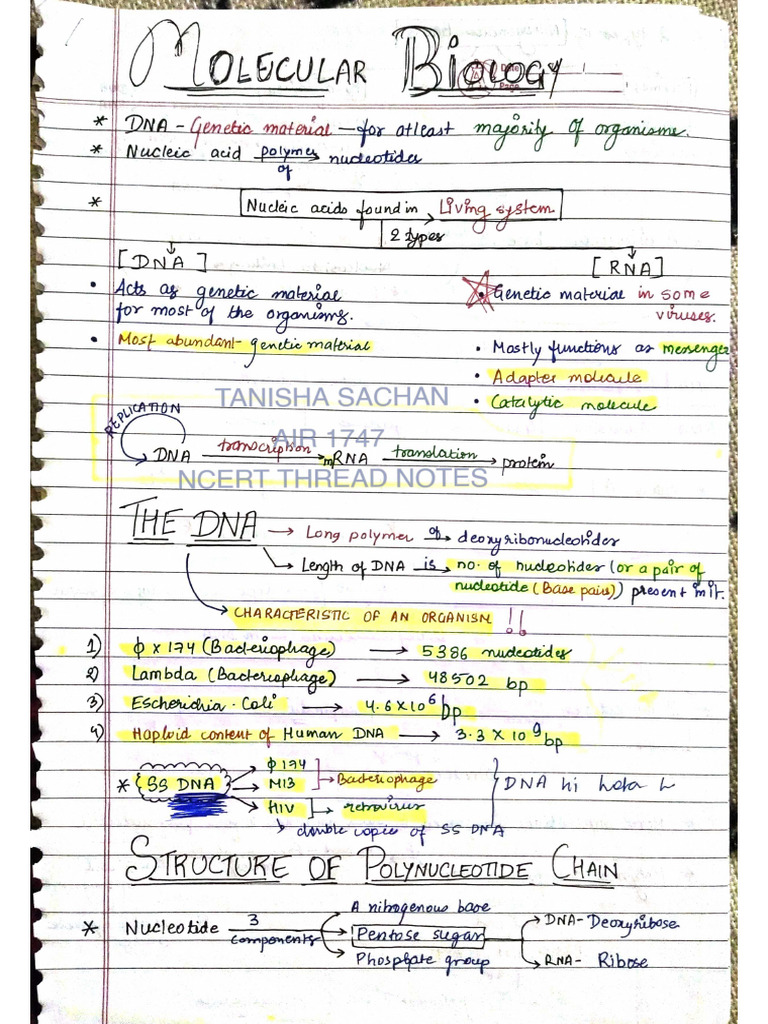 MOLECULAR BIOLOGY
Date
Page
* DNA - Genetic material - for atleast majority of organisms.
* Nucleic acid polymer of → nucleotides
* Nucleic acids found in → Living system
2 types
[DNA] [RNA]
• Acts as genetic material for most of the organisms.
• Genetic material in some viruses.
• Most abundant genetic material
• Mostly functions as messenger
• Adapter molecule
• Catalytic molecule
TANISHA SACHAN
AIR 1747
NCERT THREAD NOTES
REPLICATION
DNA transcription → mRNA translation → protein
THE DNA → Long polymer of → deoxyribonucleotides
→ Length of DNA is → no. of nucleotides (or a pair of
nucleotide (Base pairs)) present in it.
→ CHARACTERISTIC OF AN ORGANISM !!
1) φ x 174 (Bacteriophage) → 5386 nucleotides
2) Lambda (Bacteriophage) → 48502 bp
3) Escherichia. Coli → 4.6 X 10⁶ bp
4) Haploid content of Human DNA → 3.3 X 10⁹ bp
* SS DNA → φ 174
→ M13 → Bacteriophage
→ HIV → retrovirus
DNA hi hota h
↳ double copies of SS DNA
STRUCTURE OF POLYNUCLEOTIDE CHAIN
* Nucleotide 3 components
→ A nitrogenous base
→ Pentose sugar → DNA - Deoxyribose
→ RNA - Ribose
→ Phosphate group